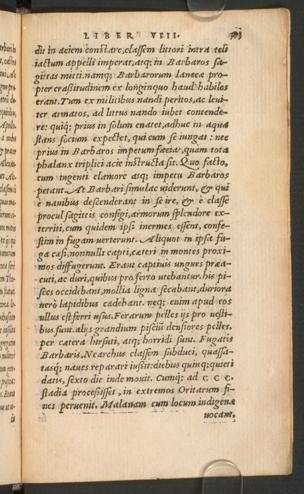 LIBER VIII.
dit in aciem constare, classem littori intra teli
iactum appelli imperat, atq; in Barbaros sa-
gittas mitti. namq; Barbarorum lancea pro-
pter crassitudinem ex longinquo haud habiles
erant. Tum ex militibus nandi peritos, ac leui-
ter armatos, ad litus nando iubet contende-
re: quiq; prius in solum euaserit, adhuc in aqua
stans socium expectet, qui cum se iungat: nec
prius in Barbaros impetum faciat, quam tota
phalanx triplici acie instructa sit. Quo facto,
cum ingenti clamore atq; impetu Barbaros
petant. At Barbari simulac uiderunt, & qui
è nauibus descenderant in se ire, & è classe
procul sagittis configi, armorum splendore ex-
territi, cum quidem ipsi inermes essent, confe-
stim in fugam uerterunt. Aliquot in ipsa fu-
ga casi, nonnulli capti, cateri in montes proxi-
mos diffugerunt. Erant captiuis ungues præa-
cuti, ac duri, quibus pro ferro utebantur. his pi-
sces occidebant, mollia ligna secabant, duriora
uerò lapidibus cadebant. neq; enim apud eos
ullus est ferri usus. Ferarum pelles ijs pro uesti-
bus sunt. alijs grandium pisciũ densiores pelles.
per catera hirsuti, atq; horridi sunt. Fugatis
Barbaris, Nearchus classem subduci, quassa-
tasq; naues reparari iussit: diebus quinq; quieti
datis, sexto die inde mouit. Cumq; ad CCC.
stadia processisset, in extremos Oritarum fi-
nes peruenit. Malanam eum locum indigenæ
uocant.